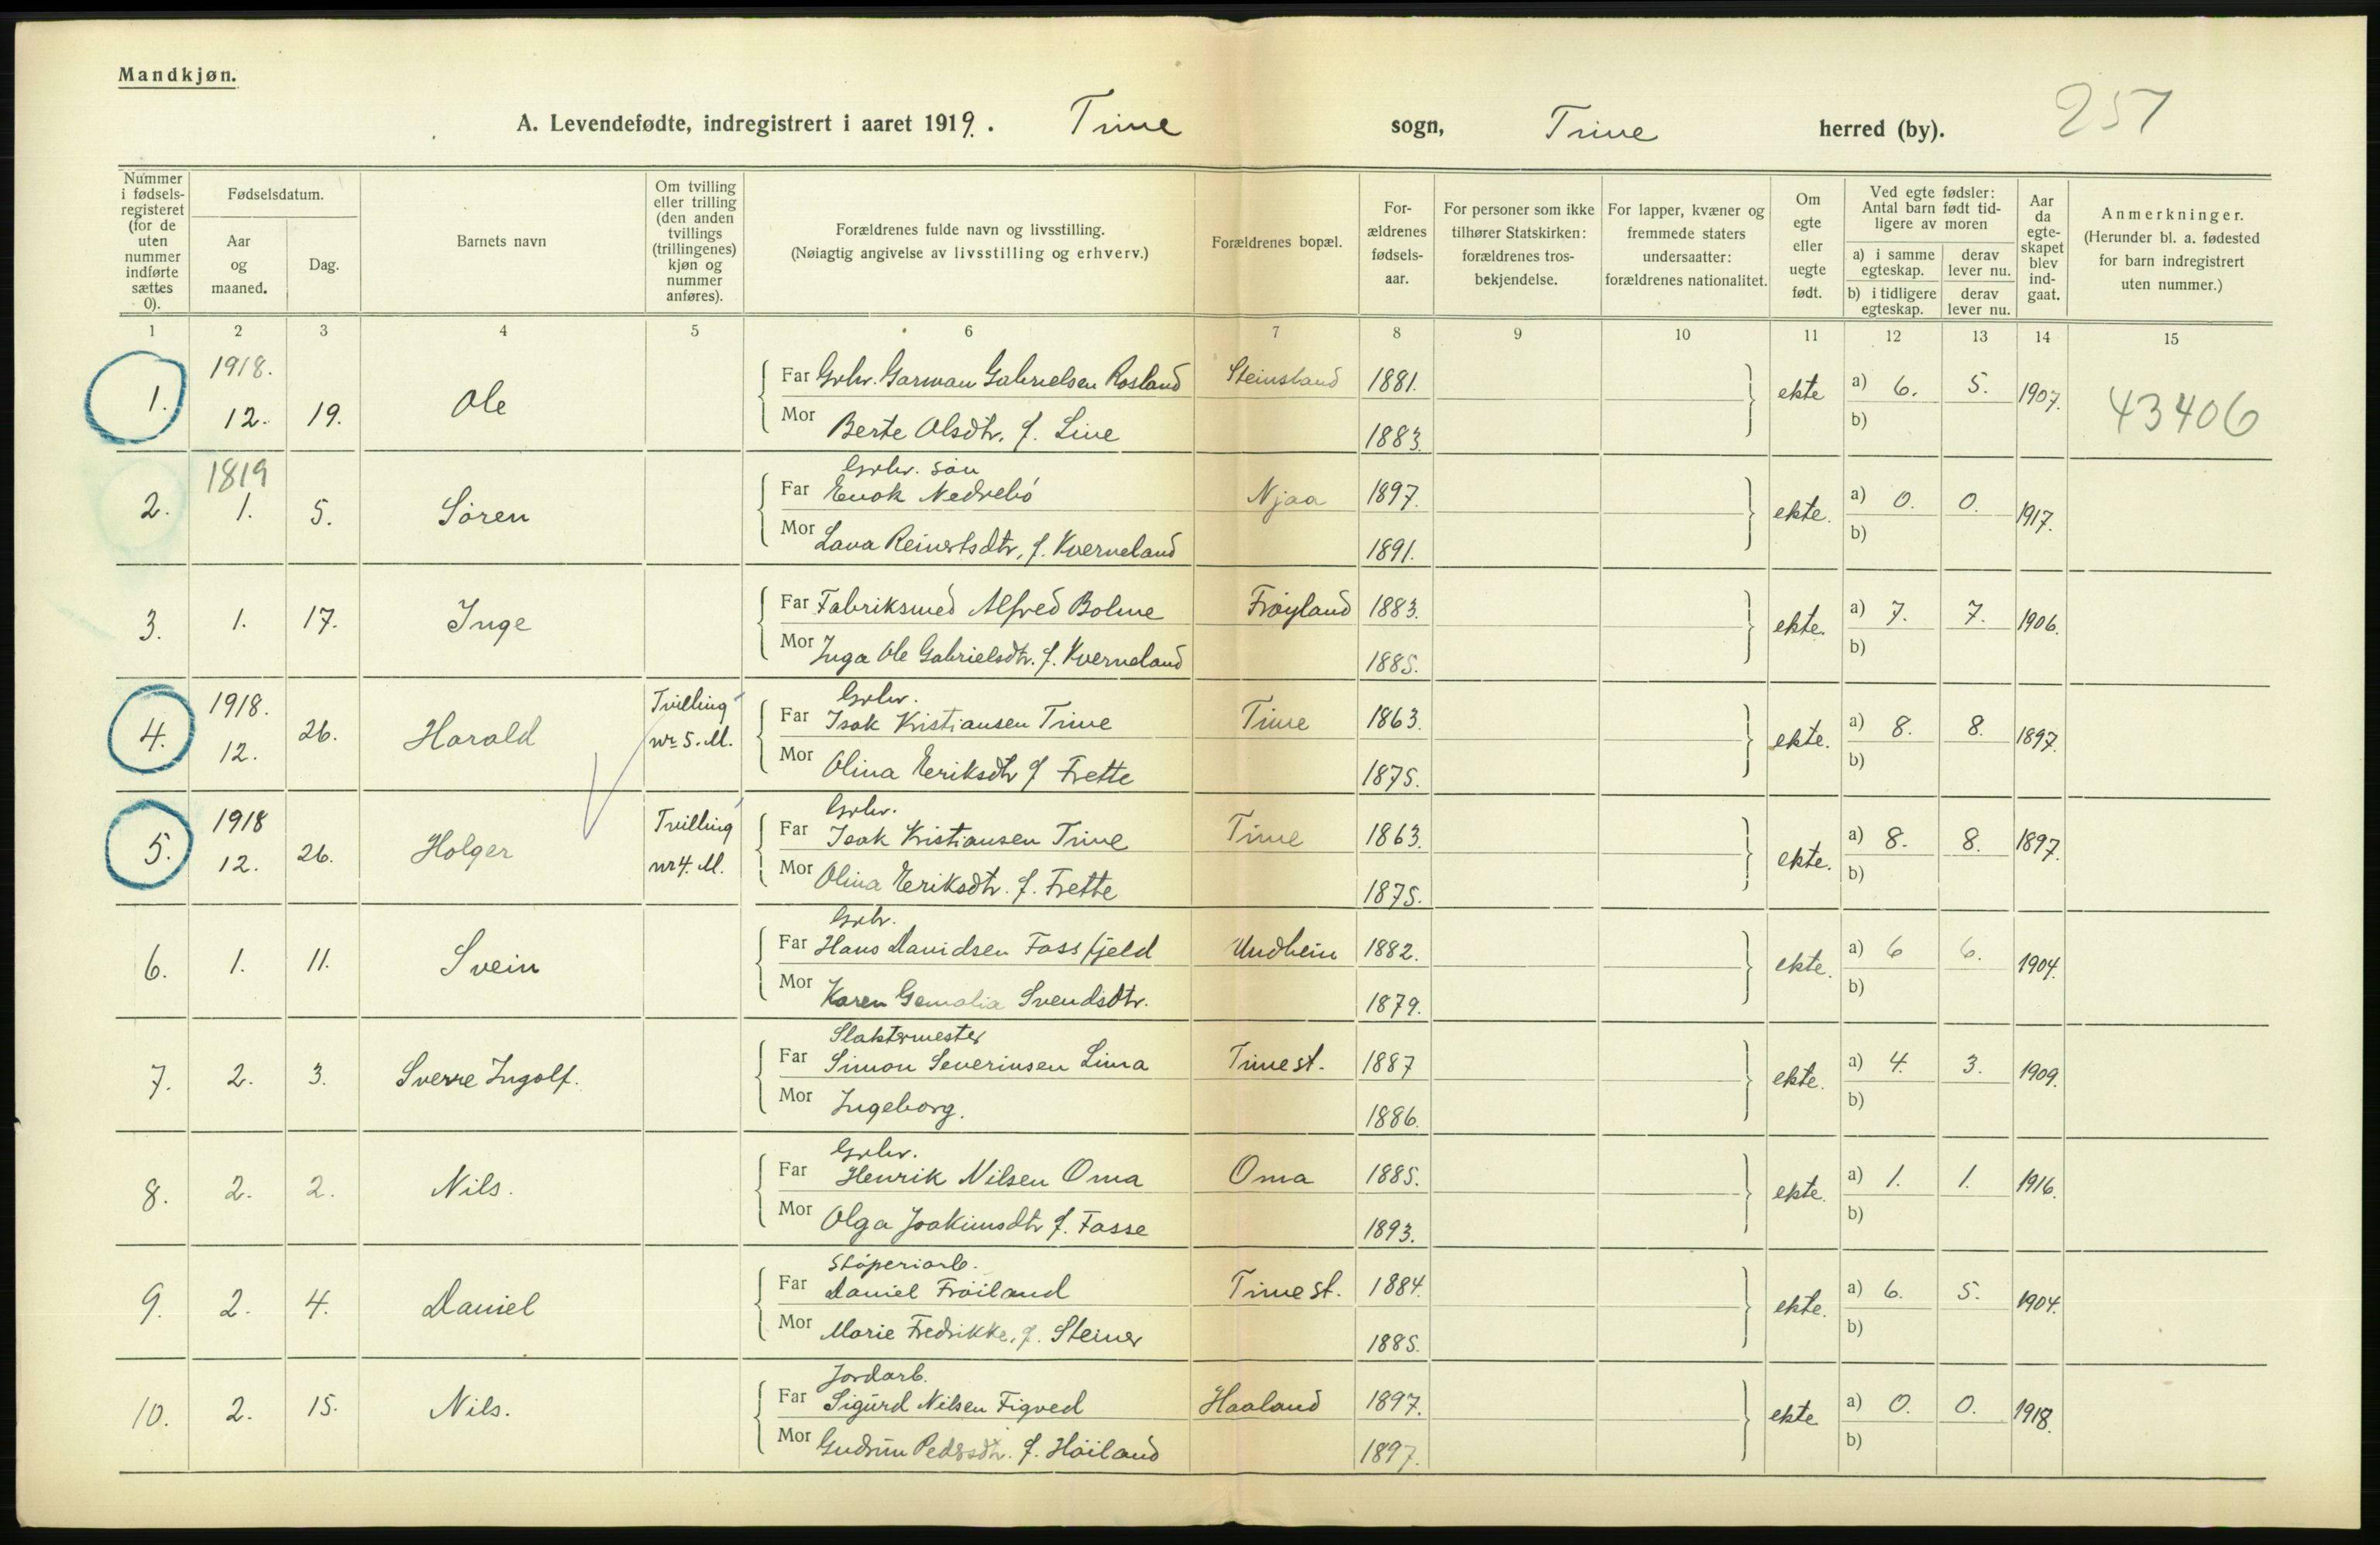 Mandkjøn.
A. Levendefødte, indregistrert i aaret 1919. Time sogn, Time herred (by). 257
Nummer i fødsels-registeret (for de uten nummer indførte sættes 0).
Fødselsdatum.
Aar og maaned.
Dag.
Barnets navn
Om tvilling eller trilling (den anden tvillings (trillingenes) kjøn og nummer anføres).
Forældrenes fulde navn og livsstilling.
(Nøiagtig angivelse av livsstilling og erhverv.)
Forældrenes bopæl.
For-ældrenes fødsels-aar.
For personer som ikke tilhører Statskirken: forældrenes tros-bekjendelse.
For lapper, kvæner og fremmede staters undersaatter: forældrenes nationalitet.
Om egte eller uegte født.
Ved egte fødsler: Antal barn født tid-ligere av moren
a) i samme egteskap. derav lever nu.
b) i tidligere egteskap. derav lever nu.
Aar da egte-skapet blev ind-gaat.
Anmerkninger.
(Herunder bl. a. fødested for barn indregistrert uten nummer.)
1 2 3 4 5 6 7 8 9 10 11 12 13 14 15
1. 1918. 12. 19. Ole Far Grbr. Garman Gabrielsen Rosland Steinsland 1881. ekte a) 6. 5. 1907. 43406
Mor Berte Olsdtr. f. Line 1883. b)
2. 1819 1. 5. Sören Grbr. sön
Far Enok Nedrebö Njaa 1897. ekte. a) 0. 0. 1917.
Mor Lava Reinertsdtr, f. Kverneland 1891. b)
3. 1. 17. Inge Far Fabriksmed Alfred Bolme Fröyland 1883. ekte. a) 7. 7. 1906.
Mor Inga Ole Gabrielsdtr. f. Kverneland 1885. b)
4. 1918. 12. 26. Harald Tvilling nr 5. M. Grbr.
Far Isak Kristiansen Time Time 1863. ekte. a) 8. 8. 1897.
Mor Olina Eeriksdtr f Frette 1875. b)
5. 1918 12. 26. Holger Tvilling nr 4. M. Grbr.
Far Isak Kristiansen Time Time 1863. ekte. a) 8. 8. 1897.
Mor Olina Eeriksdtr. f. Frette 1875. b)
6. 1. 11. Svein Grbr.
Far Hans Davidsen Fossfjeld Undhein 1882. ekte. a) 6 6. 1904.
Mor Karen Svendsdtr. 1879. b)
7. 2. 3. Sverre Ingolf. Slaktermester
Far Simon Severinsen Lima Time st. 1887 ekte. a) 4. 3. 1909.
Mor Ingeborg. 1886. b)
8. 2. 2. Nils. Grbr.
Far Henrik Nilsen Oma Oma 1885. ekte. a) 1. 1. 1916.
Mor Olga Joakimsdtr f. Fosse 1893. b)
9. 2. 4. Daniel Stöperiarb.
Far Daniel Fröiland Time st. 1884. ekte. a) 6. 5. 1904.
Mor Marie Fredrikke, f. Steiner 1885. b)
10. 2. 15. Nils. Jordarb.
Far Sigurd Nilsen Figved Haaland 1897. ekte a) 0. 0. 1918.
Mor Gudrun Pedersdtr. f. Höiland 1897. b)